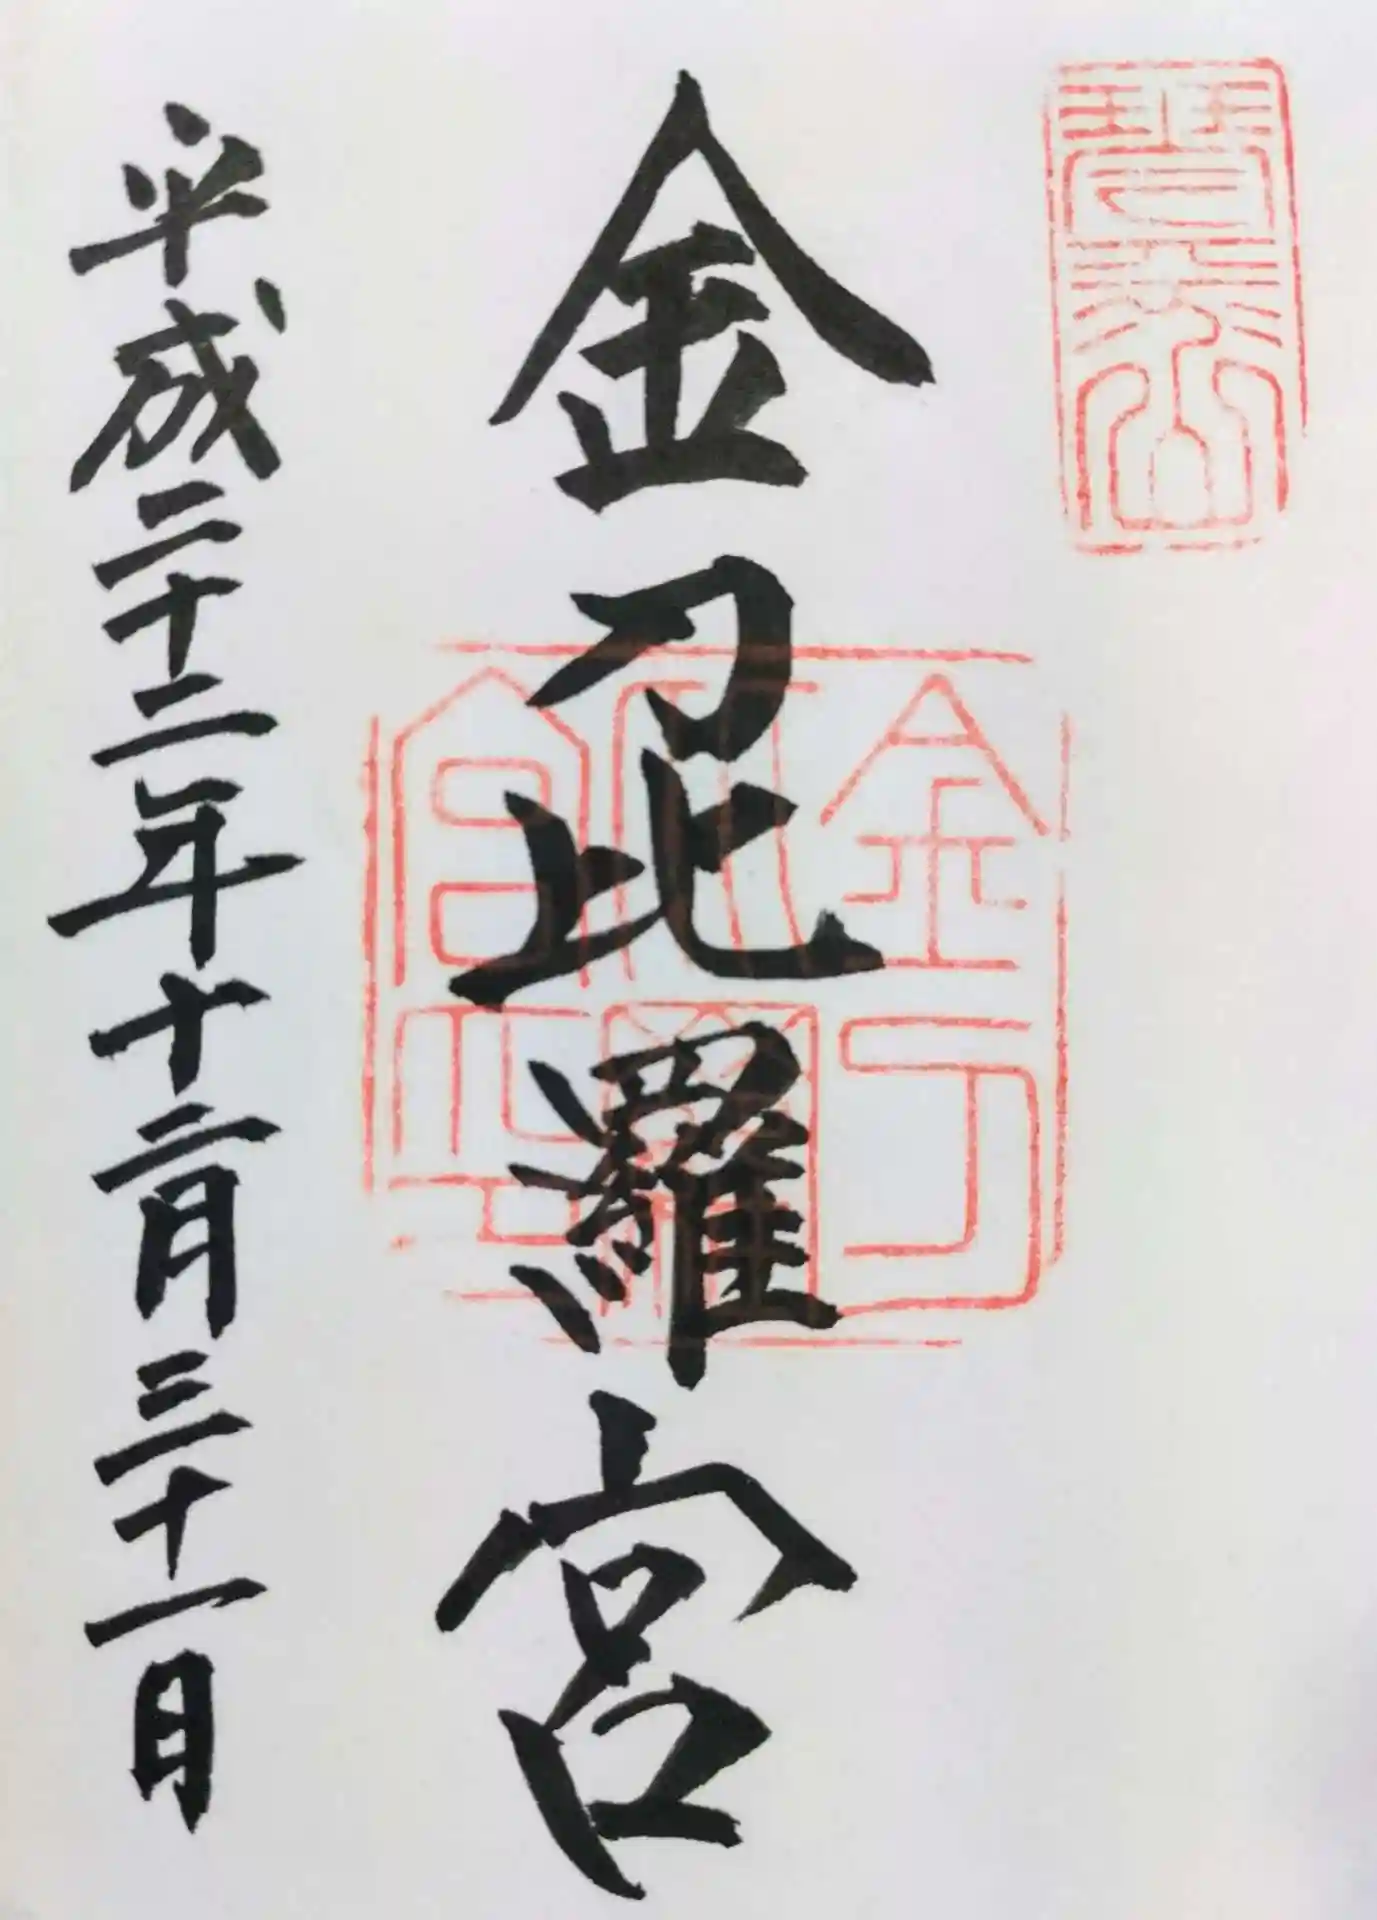 琴平山
金刀比羅宮
金刀
比羅
宮
平成二十二年十二月三十一日